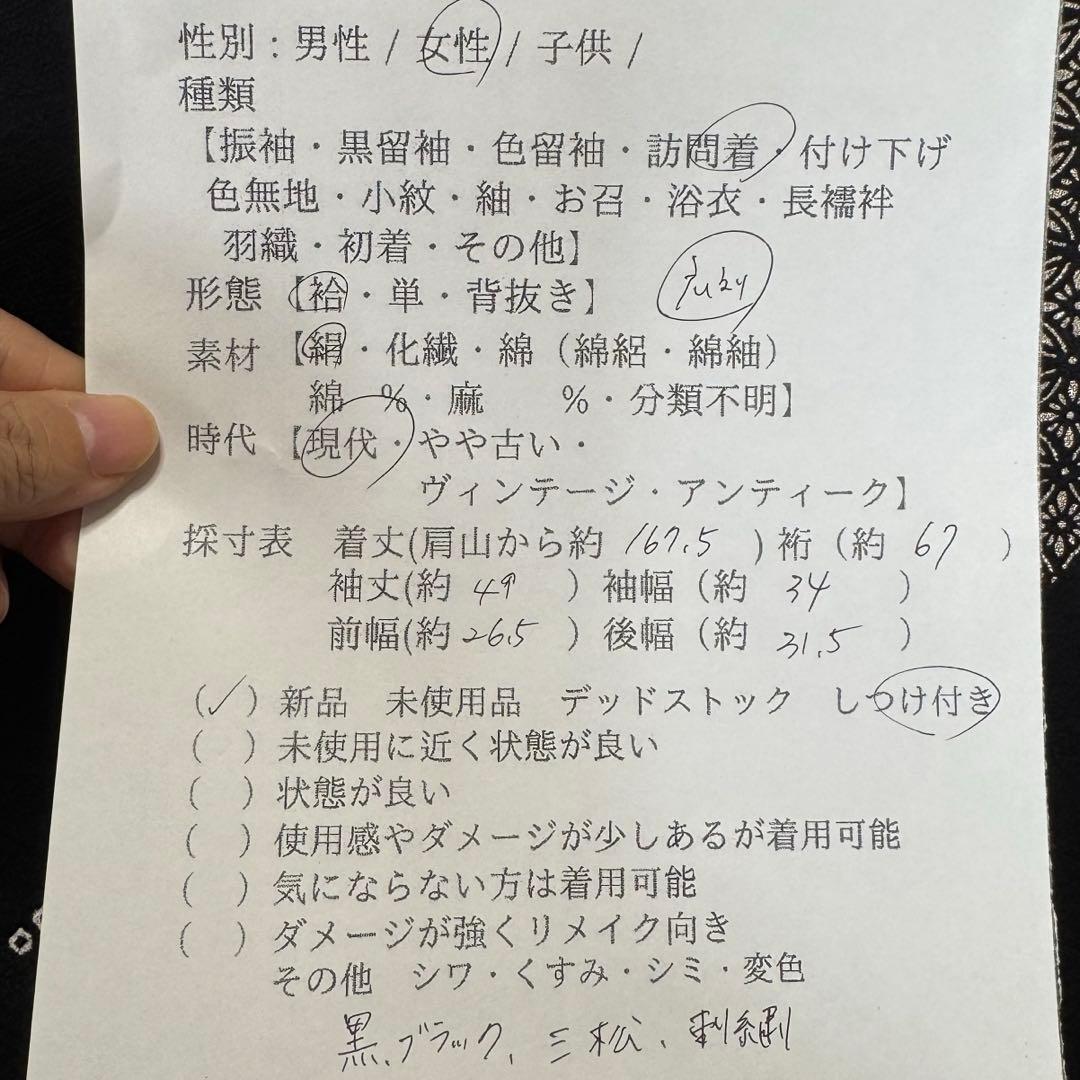 性別：男性 / 女性 / 子供 /
種類
【振袖・黒留袖・色留袖・訪問着・付け下げ
色無地・小紋・紬・お召・浴衣・長襦袢
羽織・初着・その他】
形態【袷・単・背抜き】
素材【絹・化繊・綿（綿絽・綿紬）
綿　％・麻　　％・分類不明】
時代【現代・やや古い・
ヴィンテージ・アンティーク】
採寸表　着丈(肩山から約 167.5 ) 裄（約 67 ）
袖丈(約 49 ）袖幅（約 34 ）
前幅(約 26.5 ）後幅（約 31.5 ）
(✓) 新品　未使用品　デッドストック　しつけ付き
(　) 未使用に近く状態が良い
(　) 状態が良い
(　) 使用感やダメージが少しあるが着用可能
(　) 気にならない方は着用可能
(　) ダメージが強くリメイク向き
その他　シワ・くすみ・シミ・変色
黒、ブラック、三松、刺繍